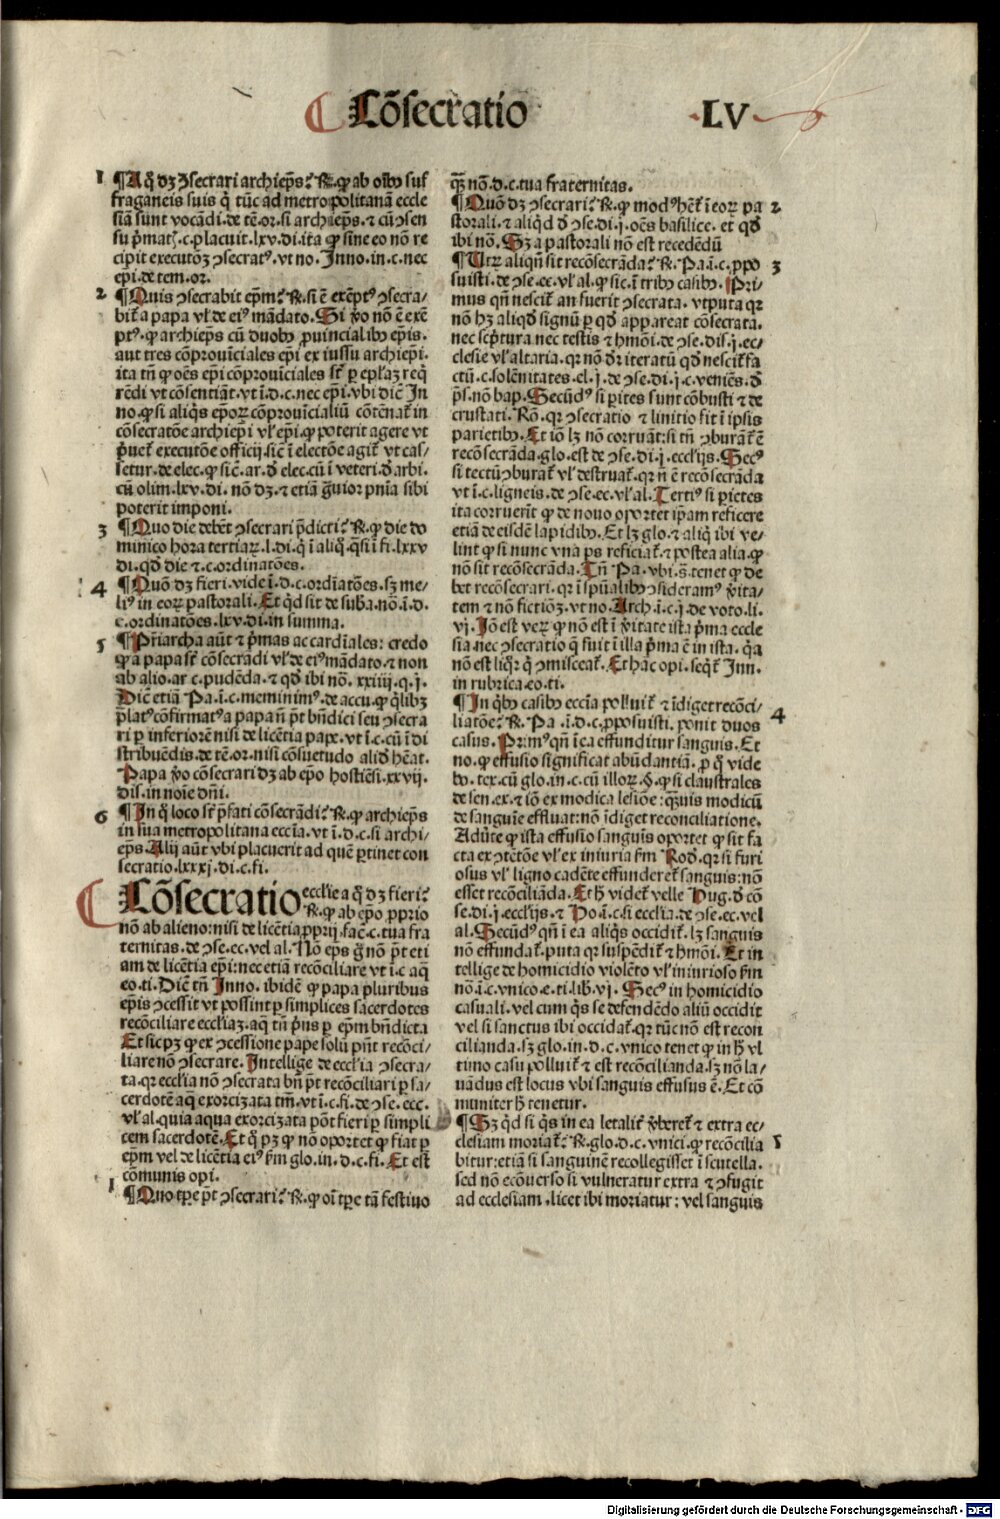 Cōsecratio
LV
1 ¶ A q̄ dȝ ɔsecrari archiep̄s? ℞. ꝙ ab oībꝰ suf
fraganeis suis q̄ tūc ad metropolitanā eccle
siā sunt vocādi. de tē. or. si archiep̄s. ⁊ cū ɔsen
su p̄mat?. c. placuit. lxv. di. ita ꝙ sine eo nō re
cipit executōȝ ɔsecratꝰ. vt no. Inno. in. c. nec
ep̄i. de tem. or.
2 ¶ Quis ɔsecrabit ep̄m? ℞. si ē exēptꝰ ɔsecra/
bit̄ a papa vl̄ de eiꝰ mādato. Si v̄o nō ē exē
ptꝰ. ꝙ archiep̄s cū duobꝰ ꝓuincialibꝰ ep̄is.
aut tres cōprouīciales ep̄i ex iussu archiep̄i.
ita tn̄ ꝙ oēs ep̄i cōprouīciales st̄ ꝑ ep̄laȝ req̄
rēdi vt cōsentiāt. vt ī. d. c. nec ep̄i. vbi dic̄ In
no. ꝙ si aliq̄s ep̄oꝝ cōprouīcialiū cōtēnat̄ in
cōsecratōe archiep̄i vl̄ ep̄i. ꝙ poterit agere vt
p̄uet̄ executōe officij. sic̄ ī electōe agit̄ vt cas/
setur. de elec. ꝙ sic̄. ar. d̄ elec. cū ī veteri. d̄ arbi.
cū olim. lxv. di. nō dȝ. ⁊ etiā gͣuior pn̄ia sibi
poterit imponi.
3 ¶ Quo die debēt ɔsecrari p̄dicti? ℞. ꝙ die do
minico hora tertiaꝝ. l. di. q̄ ī aliq̄. q̄si ī fi. lxxv
di. qd̄ die ⁊ c. ordinatōes.
4 ¶ Quō dȝ fieri. vide ī. d. c. ordīatōes. sȝ me/
liꝰ in eoꝝ pastorali. Et qd̄ sit de suba. nō. ī. d.
c. ordinatōes. lxv. di. in summa.
5 ¶ Pr̄iarcha aūt ⁊ p̄mas ac cardīales: credo
ꝙ a papa st̄ cōsecrādi vl̄ de eiꝰ mādato. ⁊ non
ab alio. ar. c. pudēda. ⁊ qd̄ ibi nō. xxiiij. q. j.
Dic̄ etiā Pa. ī. c. meminimꝰ. de accu. ꝙ q̄libȝ
p̄latꝰ cōfirmatꝰ a papa nō pt̄ bn̄dici seu ɔsecra
ri ꝑ inferiorē nisi de licētia pape. vt ī. c. cū ī di
stribuēdis. de tē. or. nisi cōsuetudo alid̄ hēat.
Papa v̄o cōsecrari dȝ ab ep̄o hostiēsi. xxvij.
dis. in noīe dn̄i.
6 ¶ In q̄ loco st̄ p̄fati cōsecrādi? ℞. ꝙ archiep̄s
in sua metropolitana eccīa. vt ī. d. c. si archi/
ep̄s. Alij aūt vbi placuerit ad quē ꝑtinet con
secratio. lxxxj. di. c. fi.
Cōsecratio eccl̄ie a q̄ dȝ fieri?
℞. ꝙ ab ep̄o ꝓprio
nō ab alieno: nisi de licētia ꝓprij. fac̄. c. tua fra
ternitas. de ɔse. ec. vel al. Nō ep̄s gͦ nō pt̄ eti
am de licētia ep̄i: nec etiā recōciliare vt ī c. aq̄
eo. ti. Dic̄ tn̄ Inno. ibidē ꝙ papa pluribus
ep̄is ɔcessit vt possint ꝑ simplices sacerdotes
recōciliare eccl̄iaȝ. aq̄ tn̄ p̄us ꝑ ep̄m bn̄dicta
Et sic pȝ ꝙ ex ɔcessione pape solū pn̄t recōci/
liare nō ɔsecrare. Intellige de eccl̄ia ɔsecra/
ta. qr eccl̄ia nō ɔsecrata bn̄ pt̄ recōciliari ꝑ sa/
cerdotē aq̄ exorcizata tm̄. vt ī. c. fi. de ɔse. ecc.
vl̄ al. quia aqua exorcizata pōt fieri ꝑ simpli
cem sacerdotē. Et q̄ pȝ ꝙ nō oportet ꝙ fiat ꝑ
ep̄m vel de licētia eiꝰ fm̄ glo. in. d. c. fi. Et est
cōmunis opī.
1 ¶ Quo tꝑe pt̄ ɔsecrari? ℞. ꝙ oī tꝑe tā festiuo
qȝ nō. d. c. tua fraternitas.
2 ¶ Quō dȝ ɔsecrari? ℞. ꝙ modꝰ hēt̄ ī eoꝝ pa
storali. ⁊ aliqd̄ d̄ ɔse. di. j. oēs basilice. et qd̄
ibi nō. Sȝ a pastorali nō est recedēdū
3 ¶ Utꝝ aliqn̄ sit recōsecrāda? ℞. Pa. ī. c. ꝓpo
suisti. de ɔse. ec. vl̄ al. ꝙ sic. ī tribꝰ casibꝰ. Pri/
mus qn̄ nescit̄ an fuerit ɔsecrata. vtputa qr
nō hȝ aliqd̄ signū ꝑ qd̄ appareat cōsecrata.
nec scp̄tura nec testis ⁊ hmōi. de ɔse. dis. j. ec/
clesie vl̄ altaria. qr nō dr̄ iteratū qd̄ nescit̄ fa
ctū. c. solēnitates. el. j. de ɔse. di. j. c. veniēs. d̄
p̄s. nō bap. Secūdꝰ si ꝑites sunt cōbusti ⁊ de
crustati. Rō. qr ɔsecratio ⁊ linitio fit ī ipsis
parietibꝰ. Et iō lȝ nō corruāt: si tn̄ ɔburāt̄ ē
recōsecrāda. glo. est de ɔse. di. j. eccl̄ijs. Secꝰ
si tectū ɔburat̄ vl̄ destruat̄. qr n̄ ē recōsecrāda
vt ī. c. ligneis. de ɔse. ec. vl̄ al. Tertiꝰ si ꝑietes
ita corruerīt ꝙ de nouo oportet ip̄am reficere
etiā de eisdē lapidibꝰ. Et lȝ glo. ⁊ aliq̄ ibi ve/
lint ꝙ si nunc vna ps reficiat̄. ⁊ postea alia. ꝙ
nō sit recōsecrāda. Tn̄ Pa. vbi. s̄. tenet ꝙ de
bet recōsecrari. qr ī spūalibꝰ ɔsideramꝰ v̄ita/
tem ⁊ nō fictiōȝ. vt no. Arch. ī. c. j. de voto. li.
vj. Iō est veꝝ ꝙ nō est ī v̄itate ista p̄ma eccle
sia nec ɔsecratio q̄ fuit ī illa p̄ma ē in ista. q̄a
nō est liq̄r q̄ ɔmisceat̄. Et hāc opi. seqt̄ Inn.
in rubrica. eo. ti.
4 ¶ In q̄bꝰ casibꝰ eccīa polluit̄ ⁊ īdiget recōci/
liatōe? ℞. Pa. ī. d. c. ꝓposuisti. ponit duos
casus. Primꝰ qn̄ ī ea effunditur sanguis. Et
no. ꝙ effusio significat abūdantiā. ꝓ q̄ vide
bꝰ. tex. cū glo. in. c. cū illoꝝ. §. ꝙ si claustrales
de sen. ex. ⁊ iō ex modica lesiōe: qȝuis modicū
de sanguīe effluat: nō īdiget reconciliatione.
Adute ꝙ ista effusio sanguīs oportet ꝙ sit fa
cta ex ɔtētōe vl̄ ex iniuria fm̄ Rod. qr si furi
osus vl̄ ligno cadēte effunderet̄ sanguis: nō
esset recōciliāda. Et h̄ videt̄ velle Hug. d̄ cō
se. di. j. eccl̄ijs. ⁊ Po. ī. c. si eccl̄ia. de ɔse. ec. vel
al. Secūdꝰ qn̄ ī ea aliq̄s occidit̄. lȝ sanguis
nō effundat̄. puta qr suspēdit̄ ⁊ hmōi. Et in
tellige de homicidio violēto vl̄ iniurioso fm̄
nō. ī. c. vnico. e. ti. lib. vj. Secꝰ in homicidio
casuali. vel cum q̄s se defendēdo aliū occidit
vel si sanctus ibi occidat̄. qr tūc nō est recon
cilianda. sȝ glo. in. d. c. vnico tenet ꝙ in h̄ vl
timo casu polluit̄ ⁊ est recōcilianda. sȝ nō la/
uādus est locus vbi sanguis effusus ē. Et cō
muniter h̄ tenetur.
5 ¶ Sȝ qd̄ si q̄s in ea letalit̄ v̄beret̄ ⁊ extra ec/
clesiam moriat̄? ℞. glo. d. c. vnici. ꝙ recōcilia
bitur: etiā si sanguinē recollegisset ī scutella.
sed nō ecōuerso si vulneratur extra ⁊ ɔfugit
ad ecclesiam. licet ibi moriatur: vel sanguis
Digitalisierung gefördert durch die Deutsche Forschungsgemeinschaft - DFG